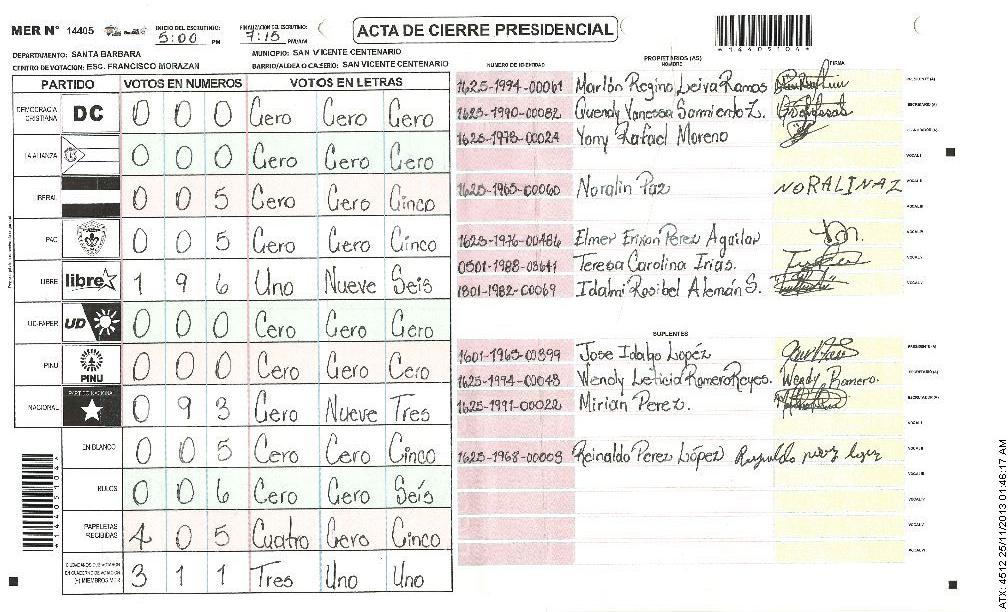 MER N° 14405
INICIO DEL ESCRUTINIO: 5:00 PM
FINALIZACION DEL ESCRUTINIO: 7:15 PM/AM
ACTA DE CIERRE PRESIDENCIAL
*14405104*
DEPARTAMENTO: SANTA BARBARA
MUNICIPIO: SAN VICENTE CENTENARIO
CENTRO DE VOTACION: ESC. FRANCISCO MORAZAN
BARRIO/ALDEA O CASERIO: SAN VICENTE CENTENARIO
PARTIDO VOTOS EN NUMEROS VOTOS EN LETRAS
DEMOCRACIA CRISTIANA DC 0 0 0 Cero Cero Cero
LA ALIANZA 0 0 0 Cero Cero Cero
LIBERAL 0 0 5 Cero Cero Cinco
PAC 0 0 5 Cero Cero Cinco
LIBRE libre 1 9 6 Uno Nueve Seis
UD-FAPER UD 0 0 0 Cero Cero Cero
PINU PINU 0 0 0 Cero Cero Cero
NACIONAL PARTIDO NACIONAL 0 9 3 Cero Nueve Tres
EN BLANCO 0 0 5 Cero Cero Cinco
NULOS 0 0 6 Cero Cero Seis
PAPELETAS RECIBIDAS 4 0 5 Cuatro Cero Cinco
CIUDADANOS QUE VOTARON EN CUADERNO DE VOTACION (+) MIEMBROS MER 3 1 1 Tres Uno Uno
*14405104*
PROPIETARIOS (AS)
NUMERO DE IDENTIDAD NOMBRE FIRMA
1625-1994-00061 Marlon Regino Leiva Ramos PRESIDENTE (A)
1625-1990-00082 Quendy Vanessa Sarmiento Z. SECRETARIO (A)
1625-1978-00024 Yony Rafael Moreno
VOCAL I
1625-1965-00060 Noralin Paz NORALINAZ VOCAL II
VOCAL III
1625-1976-00486 Elmer Erixon Perez Aguilar VOCAL IV
0501-1988-03641 Teresa Carolina Irias. VOCAL V
1801-1982-00069 Idalmi Rosibel Alemán S.
SUPLENTES
1601-1965-00399 Jose Idalgo Lopéz PRESIDENTE (A)
1625-1994-00048 Wendy Leticia Romero Reyes. Wendy Romero. SECRETARIO (A)
1625-1991-00022 Mirian Perez. ESCRUTADOR (A)
VOCAL I
1625-1968-00008 Reinaldo Perez López Reynaldo perez lopez VOCAL II
VOCAL III
VOCAL IV
VOCAL V
VOCAL VI
ATX: 4512 25/11/2013 01:46:17 AM